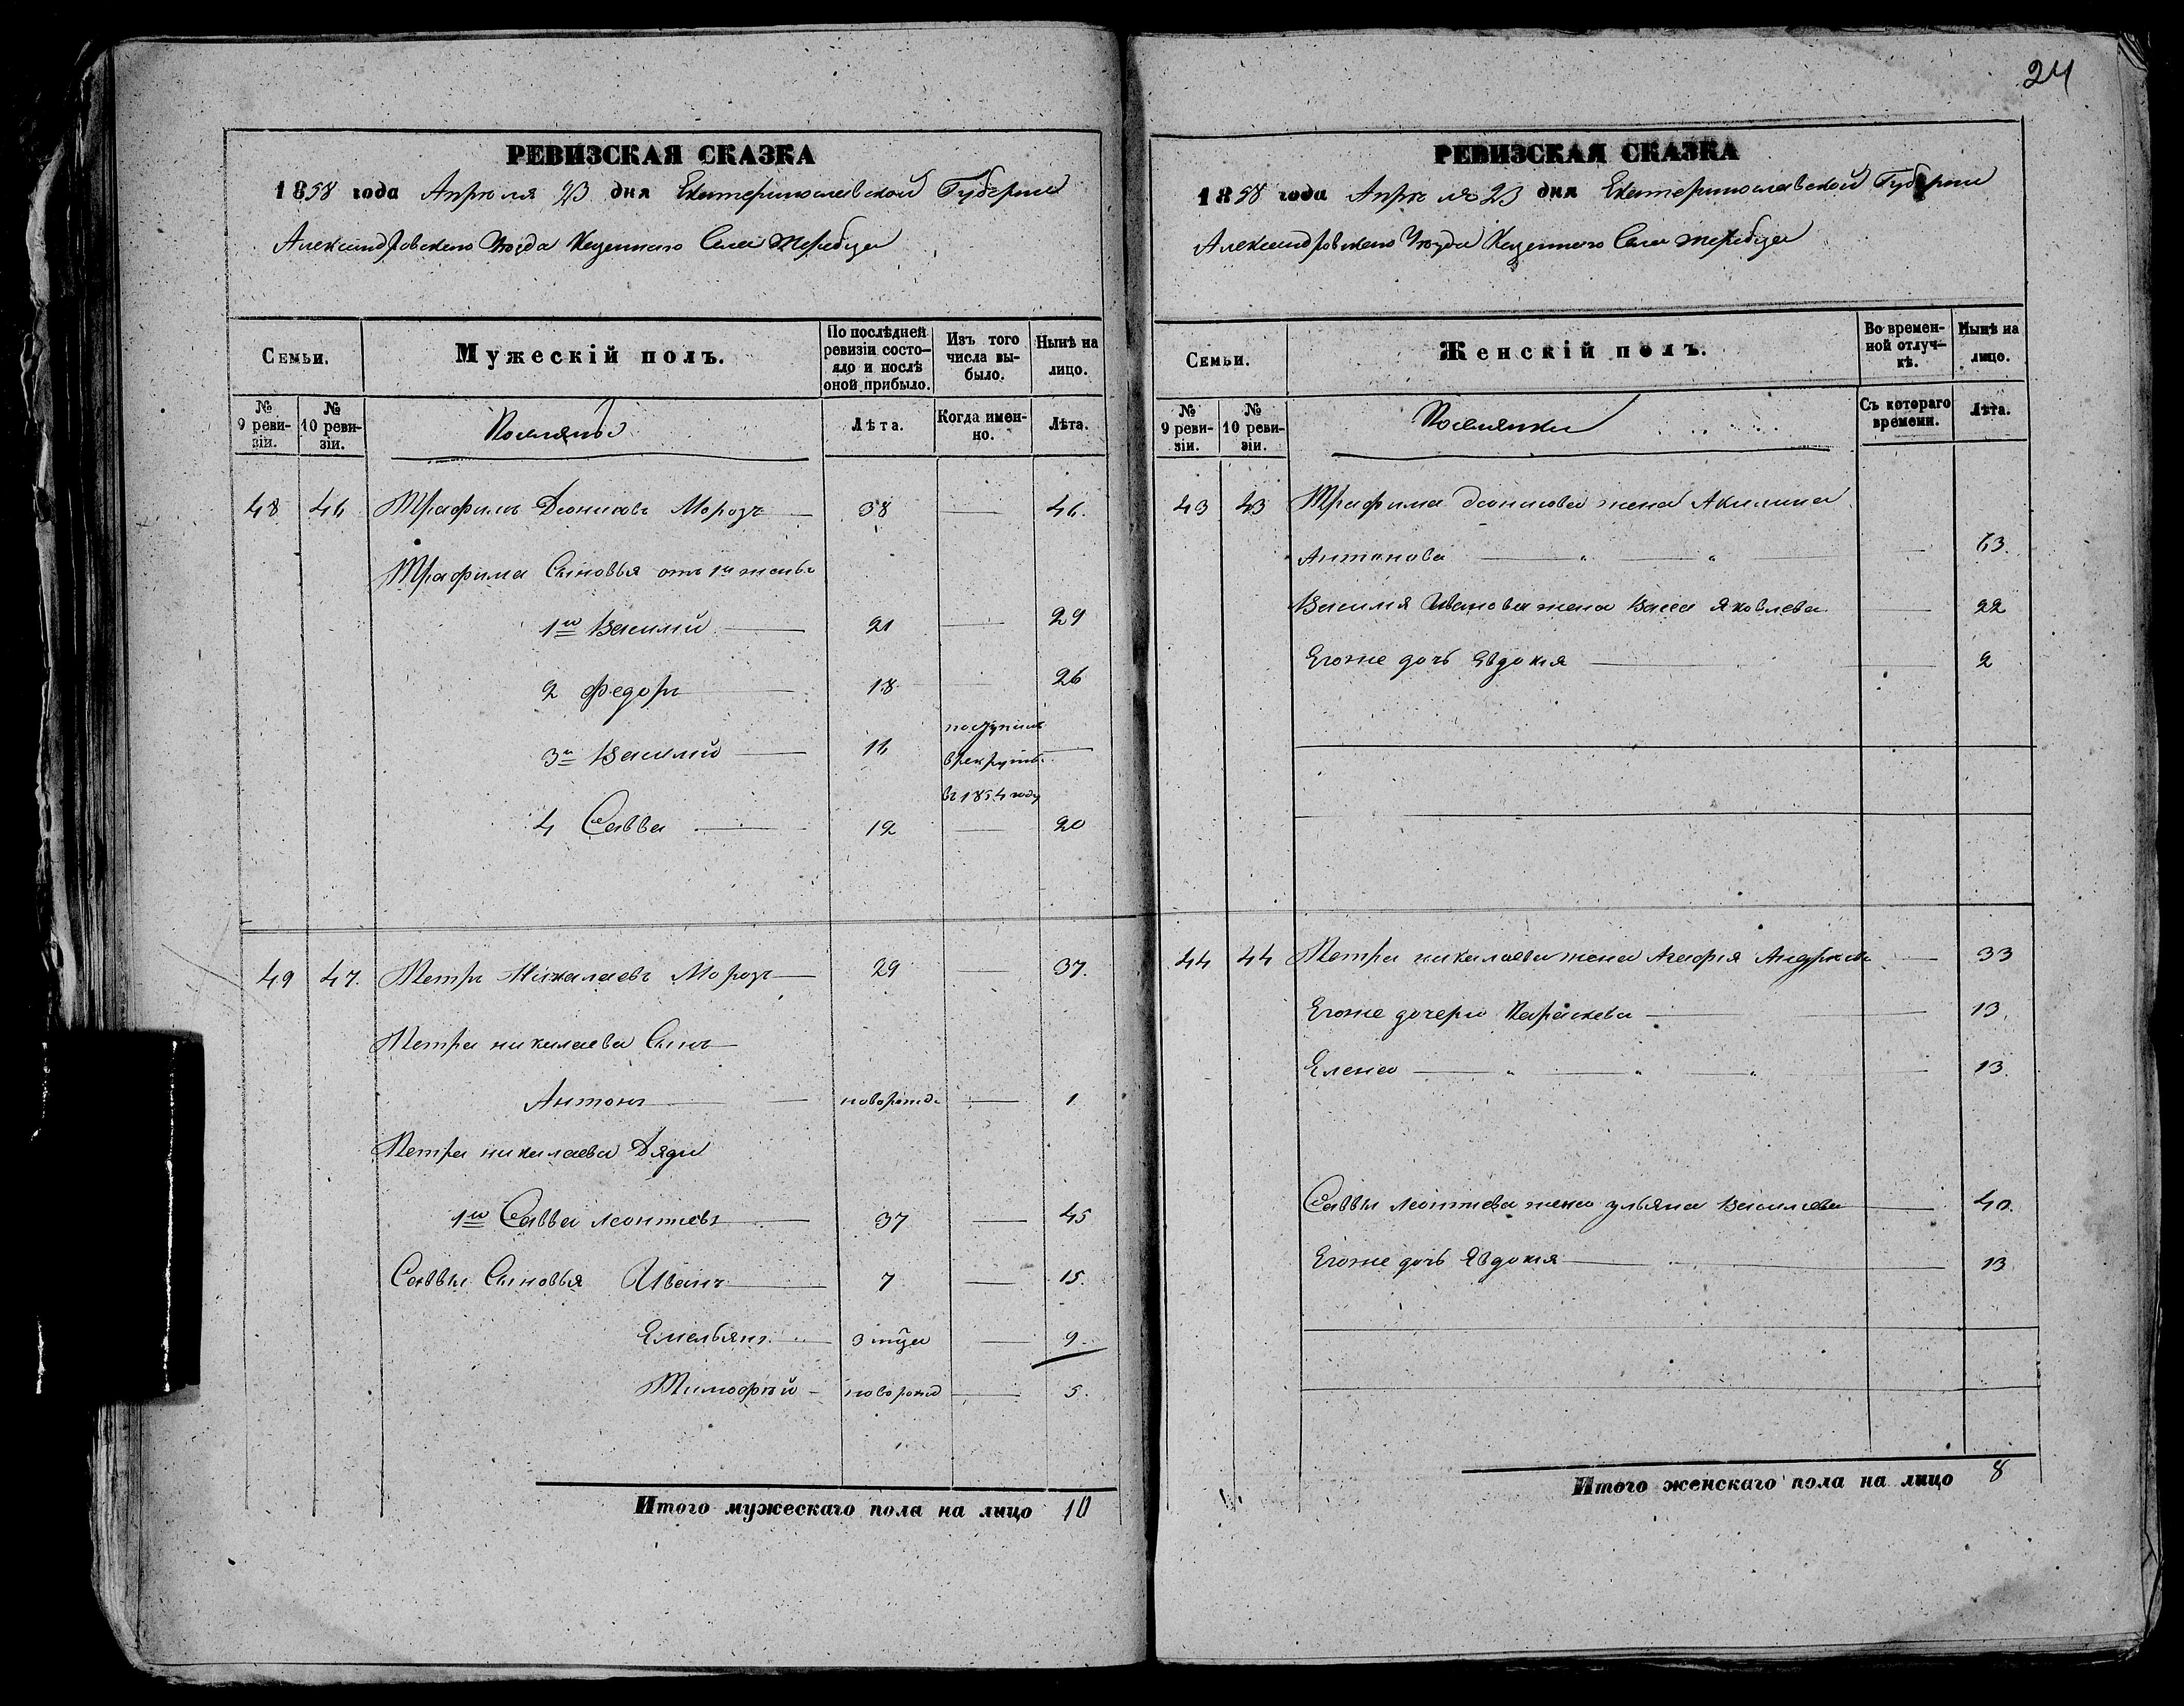 24
РЕВИЗСКАЯ СКАЗКА
1858 года Апреля 23 дня Екатеринославской Губернии
Александровского Уезда Казенного Села Терсы
СЕМЬИ.
Мужескій полъ.
По послѣдней ревизіи состояло и послѣ оной прибыло.
Изъ того числа выбыло.
Нынѣ на лицо.
№ 9 ревизіи.
№ 10 ревизіи.
Поселяне
Лѣта.
Когда именно.
Лѣта.
48 46 Трафимъ Дионисовъ Морозъ 38 — 46.
Трафима Сыновья отъ 1й жены
1й Василий — 21 — 29
2 Федоръ — 18 — 26
3й Василий — 16 поступилъ в рекруты въ 1854 году —
4 Савва — 12 — 20
49 47. Петръ Николаевъ Морозъ — 29 37.
Петра николаева Сынъ
Антонъ — новорожд — 1
Петра николаева Дяди
1й Савва леонтиевъ — 37 — 45
Саввы Сыновья Иванъ — 7 — 15.
Емельянъ — 3 мца — 9
Тимофѣй — новорожд — 5.
Итого мужескаго пола на лицо 10
РЕВИЗСКАЯ СКАЗКА
1858 года Апреля 23 дня Екатеринославской Губернии
Александровского Уезда Казенного Села
СЕМЬИ.
Женскій полъ.
Во временной отлучкѣ.
Нынѣ на лицо.
№ 9 ревизіи.
№ 10 ревизіи.
Поселянки
Съ котораго времени.
Лѣта.
43 43 Трафима дионисова жена Акилина
Антонова — „ — „ — 63.
Василия Иванова жена Васса Яковлева — 22
Егоже дочь Евдокия — 2
44 44 Петра николаева жена Агафия Андреева — 33
Егоже дочери Параскева — 13.
Елена — „ — „ — „ — 13.
Саввы леонтиева жена ульяна Василиева — 40.
Егоже дочь Евдокия — 13
Итого женскаго пола на лицо 8